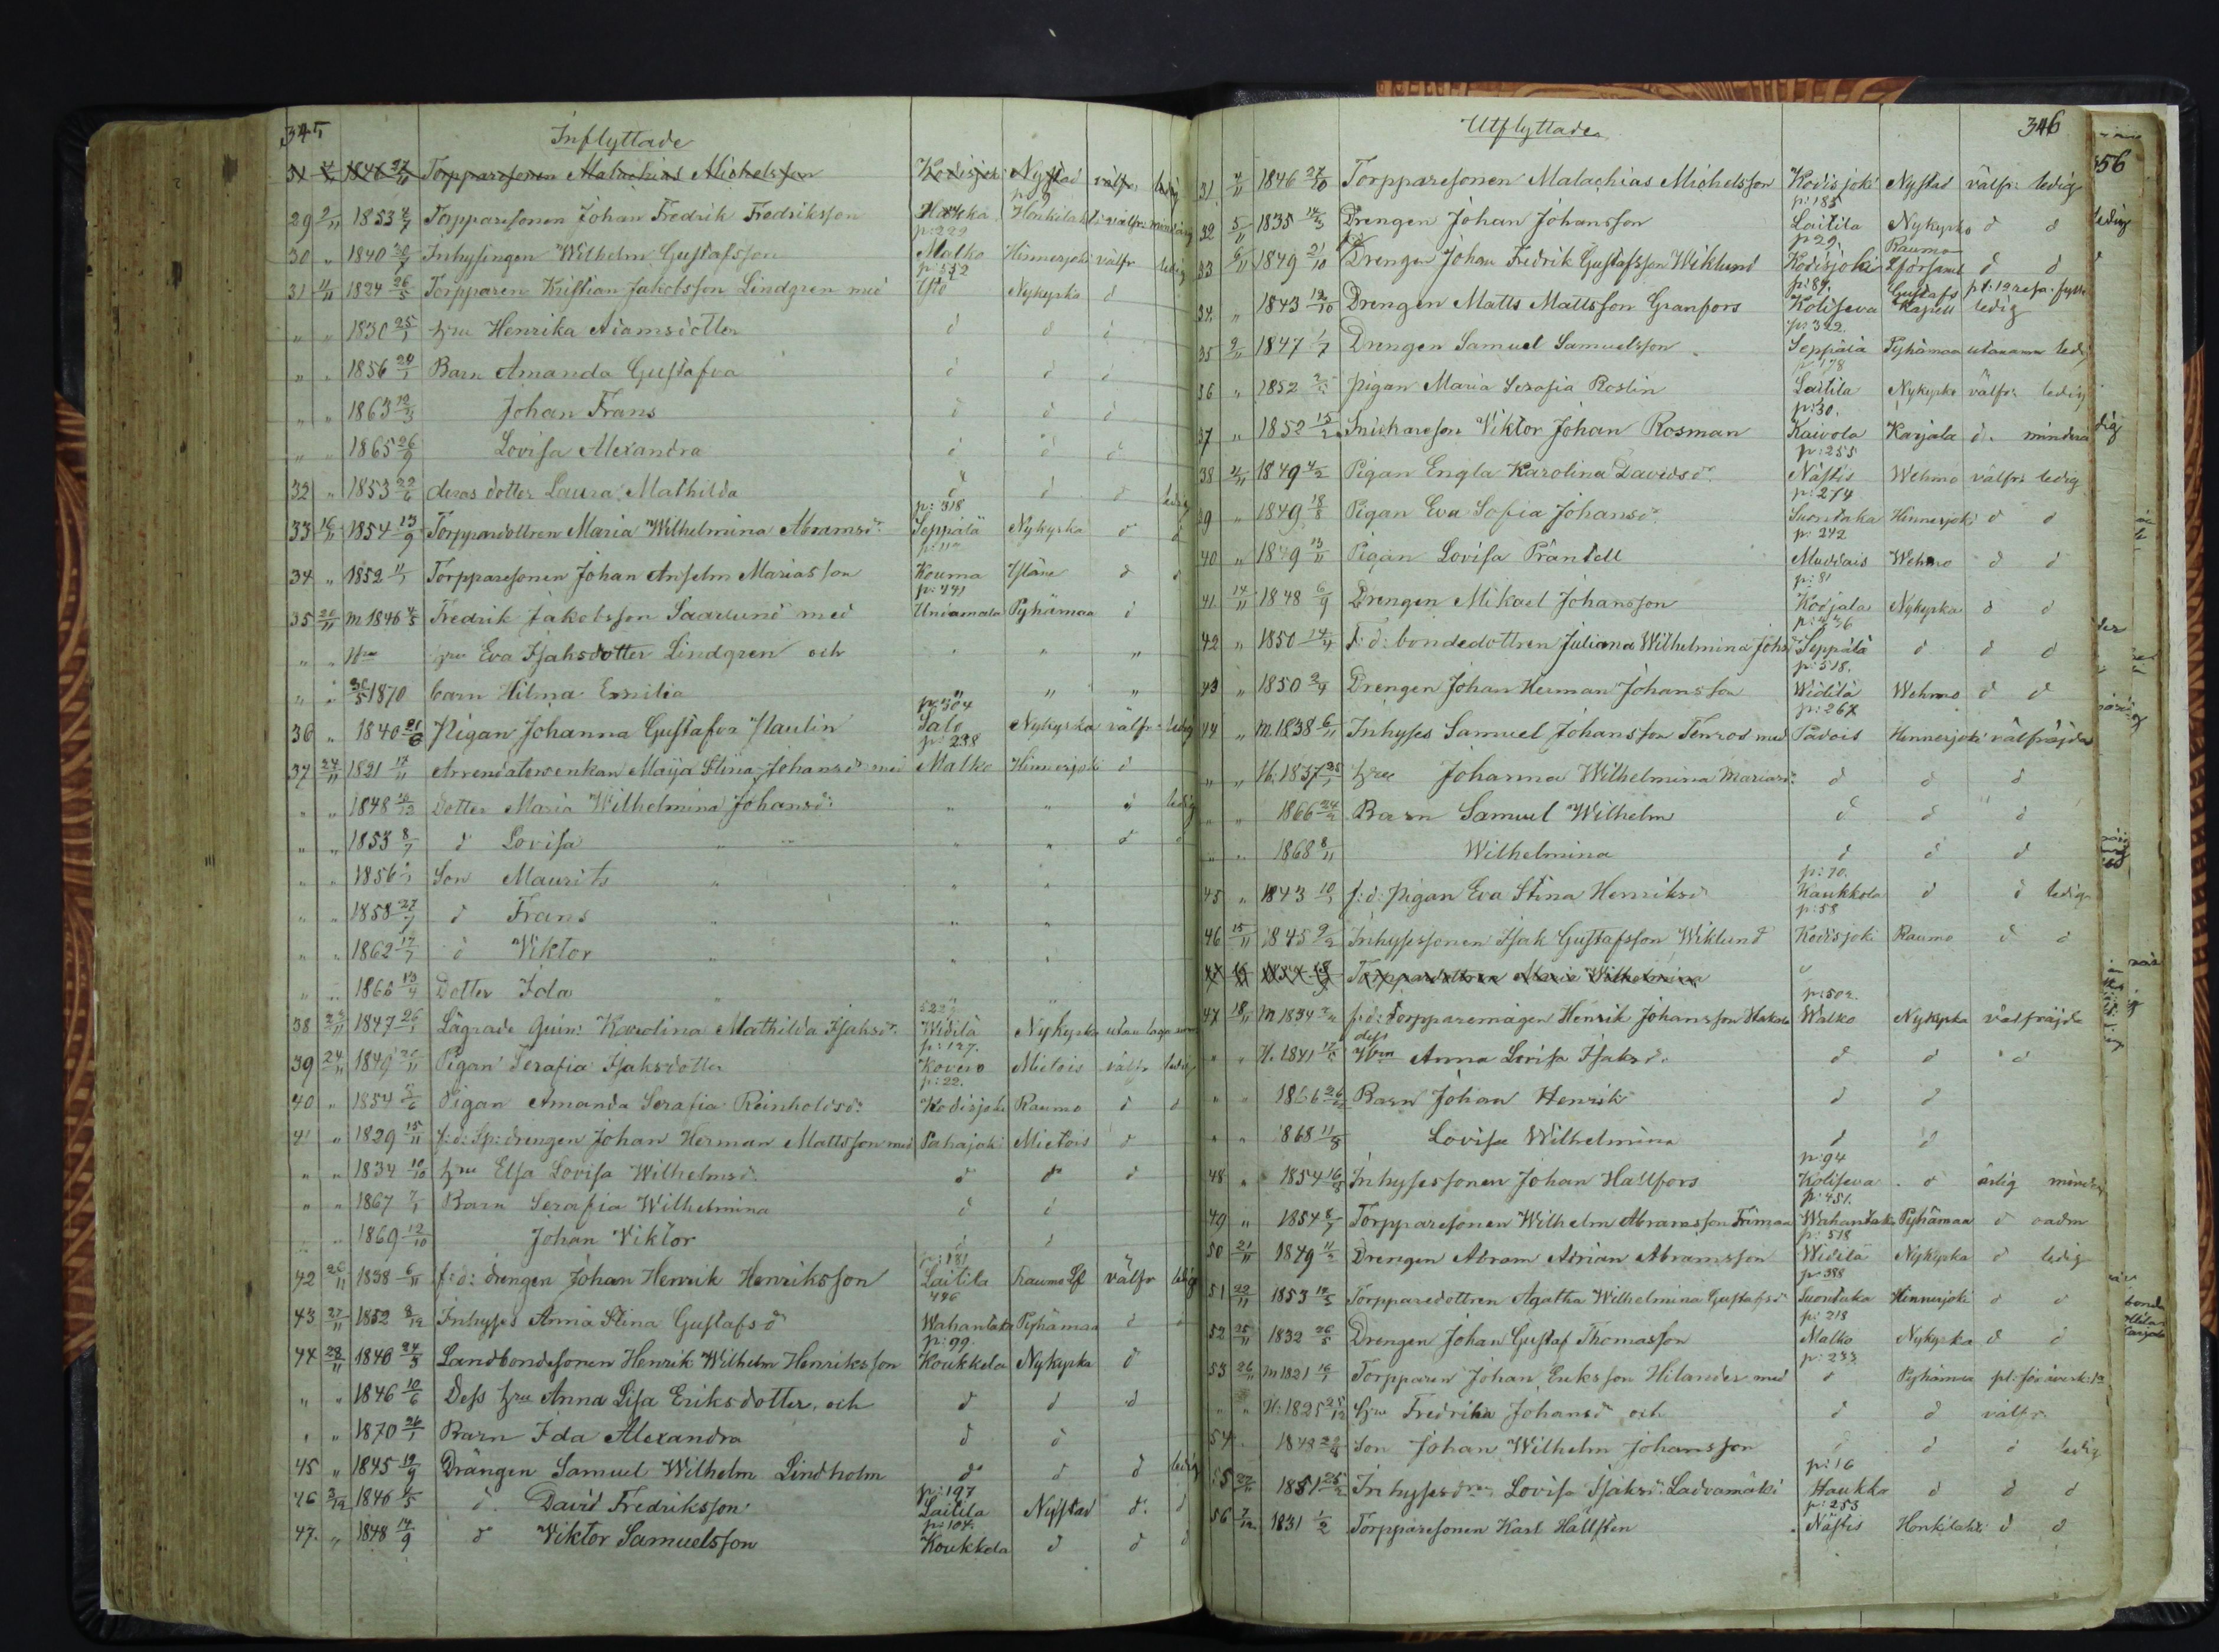 345
Inflyttade
31 4/11 1846 27/11 Torpparesonen Malachias Michelsson Kodisjoki Nystad välfr: ledig
p: 9
29 2/11 1853 4/7 Torpparesonen Johan Fredrik Fredriksson Haukka Honkilahti välfr:
p: 222
30 " 1840 30/7 Inhysingen Wilhelm Gustafsson Malko Hinnerjoki välfr ledig
p: 552
31 11/11 1824 26/5 Torpparen Kristian Jakobsson Lindgren med Nykyrka d
" " 1830 25/1 hru Henrika Adamsdotter d d d
" " 1856 20/1 Barn Amanda Gustafva d d d
" " 1863 12/3 Johan Frans d d d
" " 1865 26/9 Lovisa Alexandra d d d
32 " 1853 22/6 deras dotter Laura Mathilda d d d ledig
p: 318
33 16/11 1854 13/9 Torpparedottren Maria Wilhelmina Abramsdr Seppälä Nykyrka d d
34 " 1852 Torpparesonen Johan Anselm Mariasson Kouma Yläne d d
p: 441
35 20/11 m 1846 4/5 Fredrik Jakobsson Saarlund med Untamala Pyhämaa d
" " hru Eva Isaksdotter Lindgren och " " "
" " 30/5 1870 barn Hilma Emilia " " "
p: 304
36 " 1840 21/6 Pigan Johanna Gustafva Paulin Salo Nykyrka välfr: ledig
p: 238
37 24/11 1821 17/11 Arrendatorenkan Maija Stina Johansdr med Malko Hinnerjoki d
" " 1848 16/12 Dotter Maria Wilhelmina Johansdr: " " d ledig
" " 1853 8/7 d Lovisa " " d d
" " 1856 Son Maurits " " "
" " 1858 27/7 d Frans " " "
" " 1862 17/7 d Viktor " " "
" " 1866 13/4 Dotter Ida " "
522
38 23/11 1847 26/1 Lägrade Quin: Karolina Mathilda Isaksdr Widilä Nykyrka utan
p: 127.
39 24/11 1849 Pigan Serafia Isaksdotter Kovero Mietois välfr ledig
p: 22.
40 " 1854 5/6 Pigan Amanda Serafia Reinholdsdr: Kodisjoki Raumo d d
41 " 1829 15/11 f: d: Sp: drengen Johan Herman Mattsson med Pahajoki Mietois d
" " 1834 10/10 hru Elsa Lovisa Wilhelmsdr d d d
" " 1867 7/1 Barn Serafia Wilhelmina d d
" " 1869 12/10 Johan Viktor d d
p: 181
42 26/11 1838 6/11 f: d: drengen Johan Henrik Henriksson Laitila Raumo Lf välfr ledig
446
43 27/11 1852 8/12 Inhyses Anna Stina Gustafsdr Wahantaka Pyhämaa d d
p: 99.
44 28/11 1840 24/3 Landbondesonen Henrik Wilhelm Henriksson Koukkela Nykyrka d
" " 1846 10/6 Dess hru Anna Lisa Eriksdotter, och d d d
" " 1870 26/1 Barn Ida Alexandra d d
45 " 1845 19/9 Drängen Samuel Wilhelm Lindholm d d d ledig
p: 197
46 3/12 1846 6/5 d. David Fredriksson Laitila Nystad d. d
p: 104.
47. " 1848 14/9 d Wiktor Samuelsson Koukkela d d d
Utflyttade
346
31 4/11 1846 27/10 Torpparesonen Malachias Michelsson Kodisjoki Nystad välfr: ledig
p: 185
32 5/11 1835 14/3 Drengen Johan Johansson Laitila Nykyrka d d
p 29. Raumo
33 6/11 1849 21/10 Drengen Johan Fredrik Gustafsson Wiklund Kodisjoki Lförsaml d d
p: 89. Gustafs
34. " 1843 12/10 Drengen Matts Mattsson Granfors Koliseva Kapell ledig
p: 322.
35 9/11 1847 1/7 Drengen Samuel Samuelsson Seppälä Pyhämaa utan anm ledig
p 178
36 " 1852 Pigan Maria Serafia Roslin Laitila Nykyrka välfr: ledig
p: 30.
37 " 1852 15/2 Snickareson Viktor Johan Rosman Kaivola Karjala d: mindera
p: 255
38 11/11 1849 4/2 Pigan Engla Karolina Davidsdr. Nästis Wehmo välfr: ledig
p: 274
39 " 1849 18/8 Pigan Eva Sofia Johansdr. Suontaka Hinnerjoki d d
p: 242
40 " 1849 13/11 Pigan Lovisa Prandell Muddais Wehmo d d
p: 81
41. 14/11 1848 6/9 Drengen Mikael Johansson Kodjala Nykyrka d d
42 " 1850 14/4 F: d: bondedottren Juliana Wilhelmina Johsdr Seppälä d d d
p: 518.
43 " 1850 2/4 Drengen Johan Herman Johansson Widilä Wehmo d d
p: 267
44 " m 1838 6/11 Inhyses Samuel Johansson Tenrod med Padois Hinnerjoki välfräjdad
" " H: 1837 hru Johanna Wilhelmina Mariasdr: d d d
" " 1866 24/2 Barn Samuel Wilhelm d d d
" " 1868 8/11 Wilhelmina d d d
p: 70.
45 " 1843 f: d: pigan Eva Stina Henriksdr Kaukkola d d ledig
p: 58
46 15/11 1845 9/2 Inhysessonen Isak Gustafsson Wiklund Kodisjoki Raumo d d
47 16/11 1854 13/9 Torpparedottren Maria Wilhelmina
p: 502.
47 18/11 m 1834 f: d: Torpparemågen Henrik Johansson Walko Nykyrka välfräjda
dess
" " H. 1841 Hru Anna Lovisa Isaksdr. d d d
" " 1866 26/12 Barn Johan Henrik d d
" " 1868 11/8 Lovisa Wilhelmina d d
p: 94
48 " 1854 16/8 Inhysessonen Johan Hallfors Koliseva d ärlig
p: 451.
49 " 1854 8/7 Torpparesonen Wilhelm Abramsson Friman Wahantaka Pyhämaa d oadm
p: 518
50 21/11 1849 11/2 Drengen Abram Adrian Abramsson Widilä Nykyrka d ledig
p 388
51 22/11 1853 14/5 Torpparedottren Agatha Wilhelmina Gustafsdr Suontaka Hinnerjoki d d
p: 218
52 25/11 1832 26/5 Drengen Johan Gustaf Thomasson Malko Nykyrka d d
p: 233
53 26/11 m 1821 16/1 Torpparen Johan Eriksson Hilander med d Pyhämaa
" " H: 1825 25/12 hru Fredrika Johansdr och d d välfr.
54 1848 Son Johan Wilhelm Johansson d d d ledig
p: 16
55 27/11 1851 25/2 Inhysesdrn Lovisa Isaksdr Ladvamäki Haukka d d d
p: 253
56 7/12 1831 1/2 Torpparesonen Karl Hallsten Nästis Honkilahti d d
56
ledig